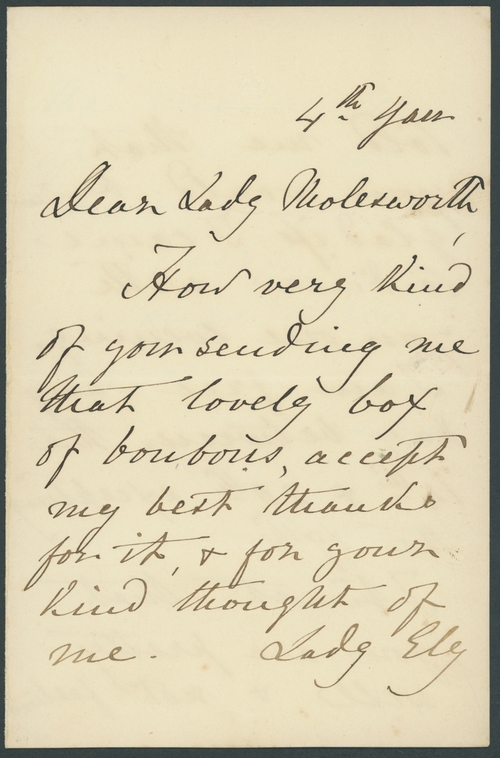 4th Jan
Dear Lady Molesworth,
How very kind
of your sending me
that lovely box
of bonbons, accept
my best thanks
for it, & for your
kind thought of
me. Lady Ely